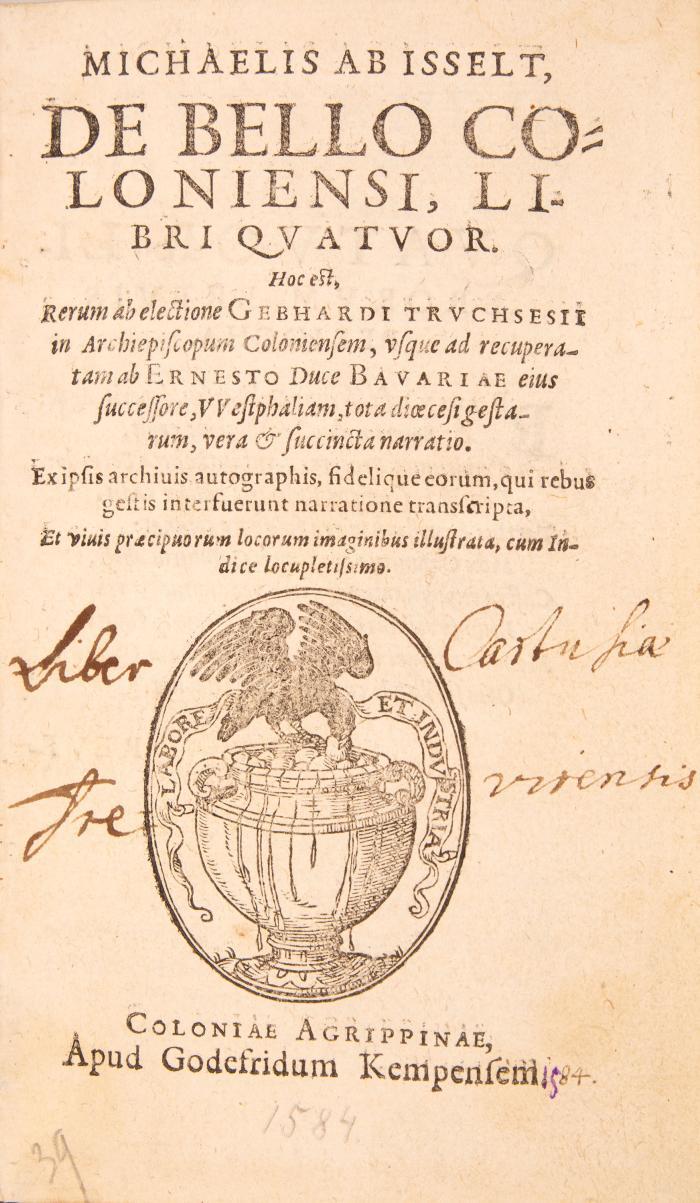 MICHAELIS AB ISSELT,
DE BELLO CO⸗
LONIENSI, LI-
BRI QVATVOR.
Hoc est,
Rerum ab electione GEBHARDI TRVCHSESII
in Archiepiſcopum Colonienſem, vſque ad recupera-
tam ab ERNESTO Duce BAVARIAE eius
ſucceſſore, VVeſtphaliam, tota diœceſi geſta-
rum, vera & ſuccincta narratio.
Ex ipſis archiuis autographis, fidelique eorum, qui rebus
geſtis interfuerunt narratione transſcripta,
Et viuis præcipuorum locorum imaginibus illuſtrata, cum In-
dice locupletiſsimo.
Liber Cartusiæ
LABORE ET INDVSTRIA
Tre virensis
COLONIAE AGRIPPINAE,
Apud Godefridum Kempenſem. 1584.
1584
39